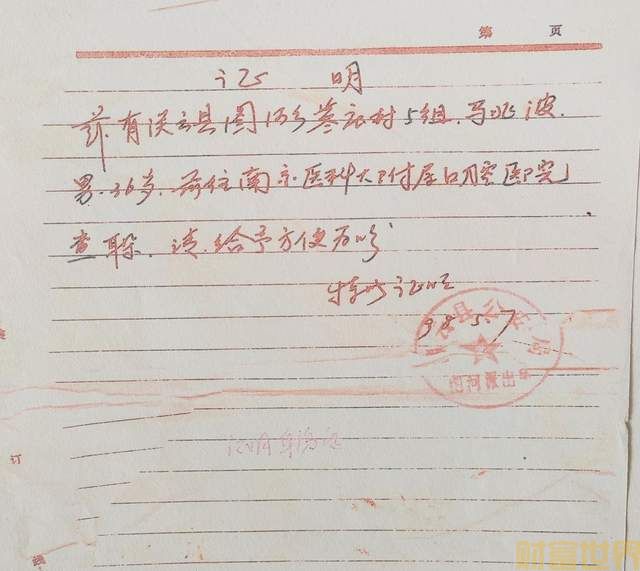 第 页
证 明
兹.有 县 乡 村5组.马兆波.
男.36岁.前往南京医科大附属口腔医院
查 .请.给予方便为
特此证明
98.5.7
县公安局
河派出所
订
线
财富世界